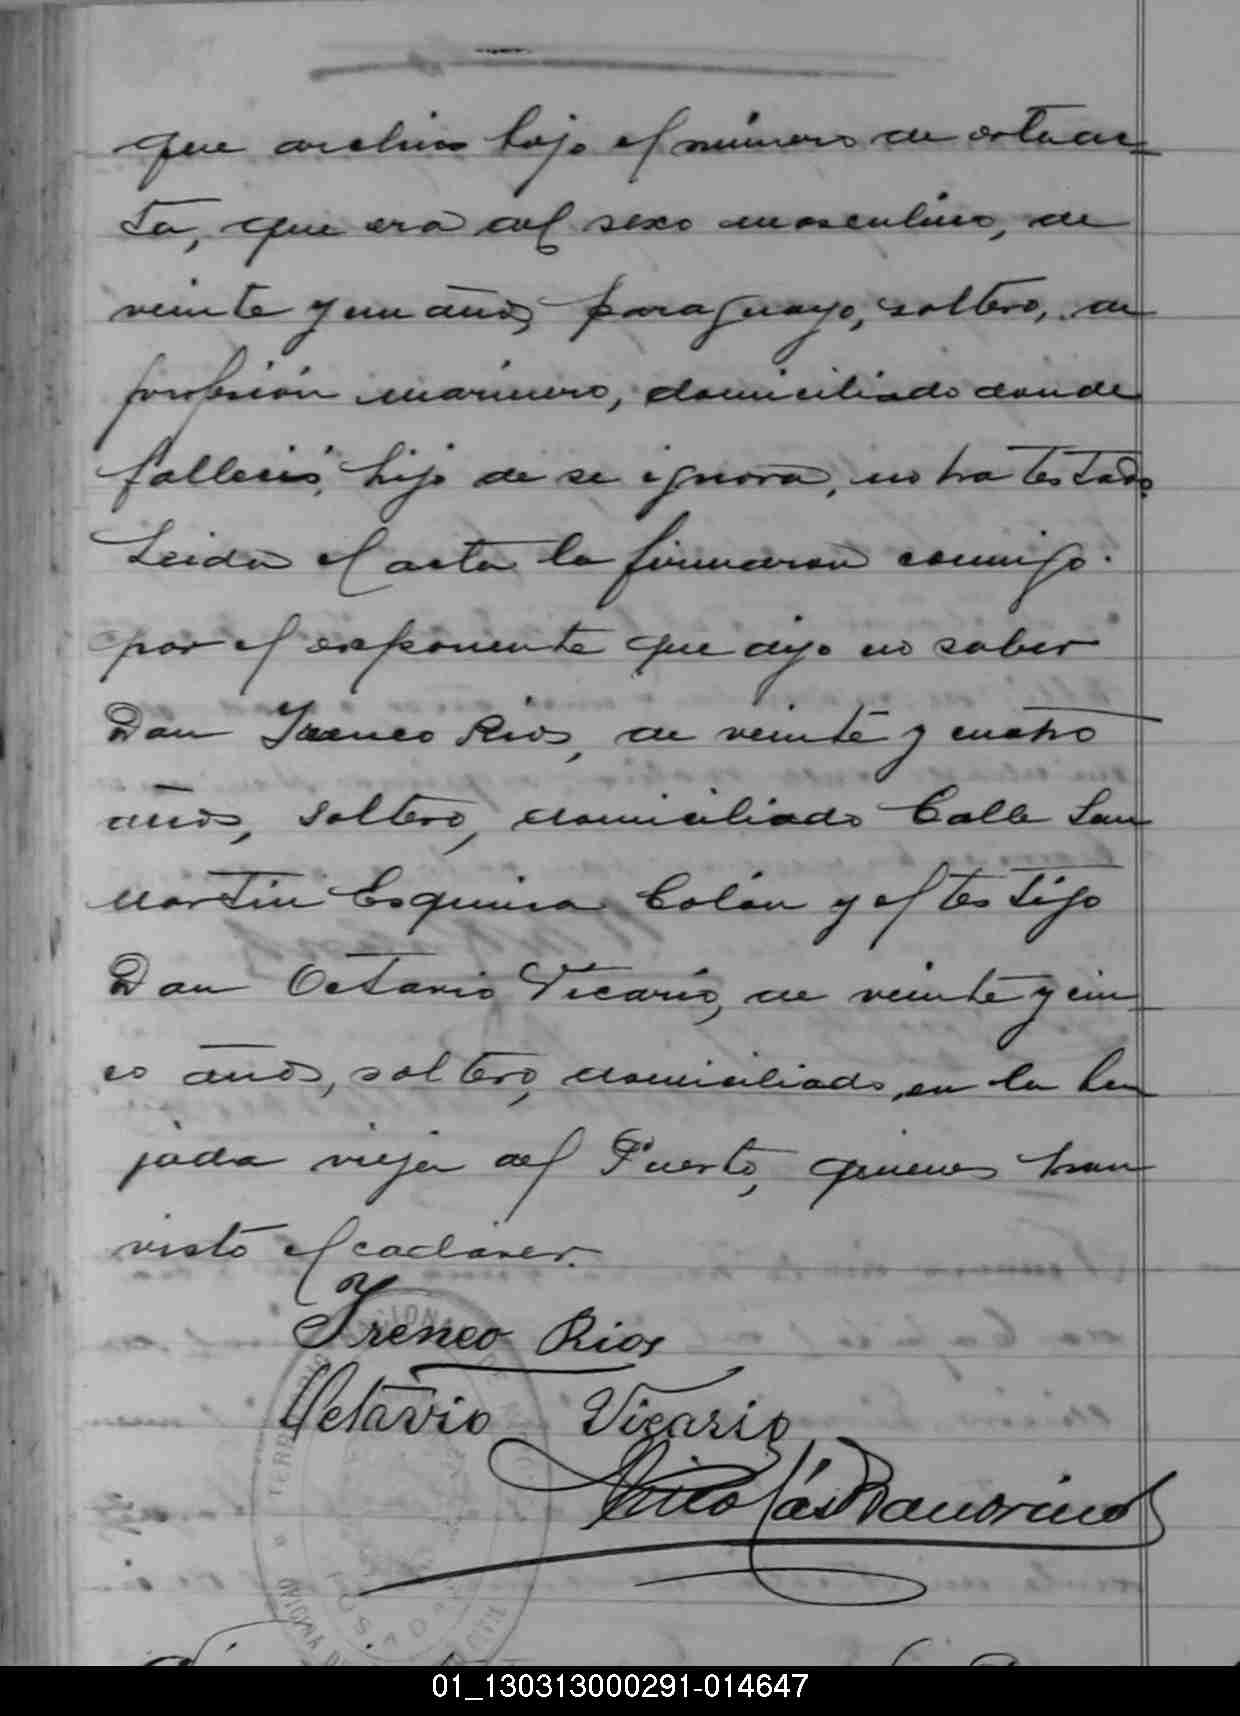 que archivo bajo el número de esta ac-
ta, que era del sexo masculino, de
veinte y un años, paraguayo, soltero, de
profesión marinero, domiciliado donde
falleció, hijo de se ignora, no ha testado.
Leida el acta la firmaron conmigo.
por el exponente que dijo no saber
Don Ireneo Rios, de veinte y cuatro
años, soltero, domiciliado Calle San
Martin Esquina Colón y el testigo
Don Octavio Vicario, de veinte y cin
co años, soltero, domiciliado, en la ba
jada vieja del Puerto, quienes han
visto el cadáver.
Ireneo Rios
Octavio Vicario
Nicolás
ROSARIO
01_130313000291-014647